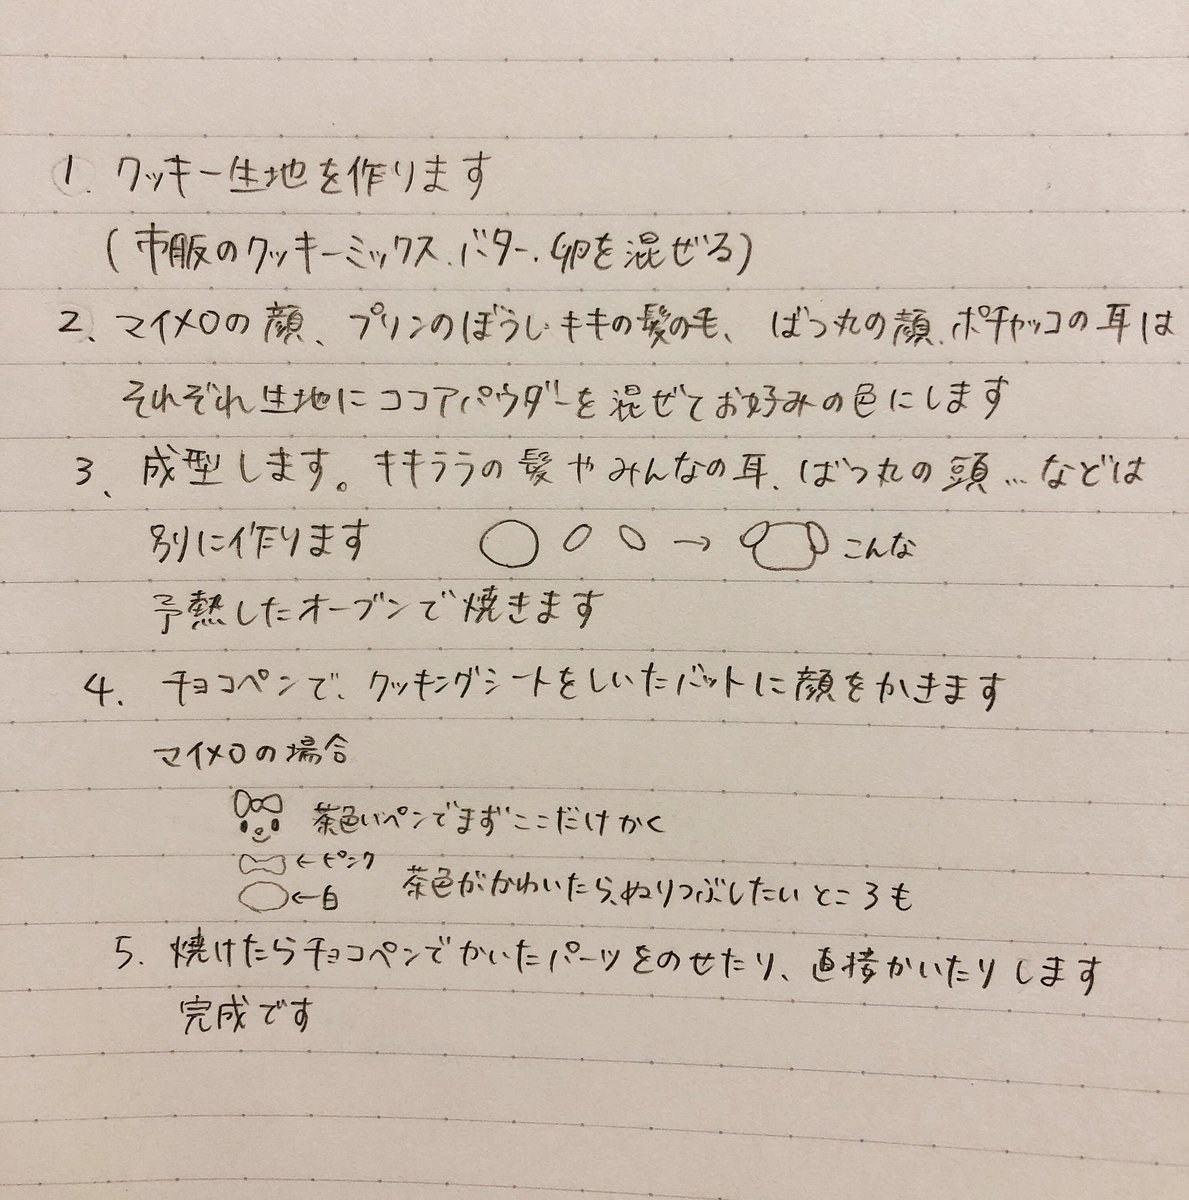 1. クッキー生地を作ります
(市販のクッキーミックス、バター、卵を混ぜる)
2、マイメロの顔、プリンのぼうし、キキの髪の毛、ばつ丸の顔、ポチャッコの耳は
それぞれ生地にココアパウダーを混ぜてお好みの色にします
3、成型します。キキララの髪やみんなの耳、ばつ丸の頭…などは
別に作ります → こんな
予熱したオーブンで焼きます
4. チョコペンで、クッキングシートをしいたバットに顔をかきます
マイメロの場合
茶色いペンでまずここだけかく
←ピンク
←白 茶色がかわいたら、ぬりつぶしたいところも
5. 焼けたらチョコペンでかいたパーツをのせたり、直接かいたりします
完成です